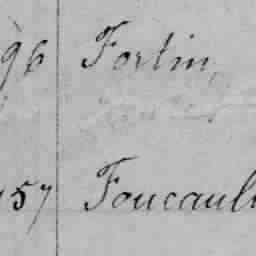 96 Fortin,
157 Foucault